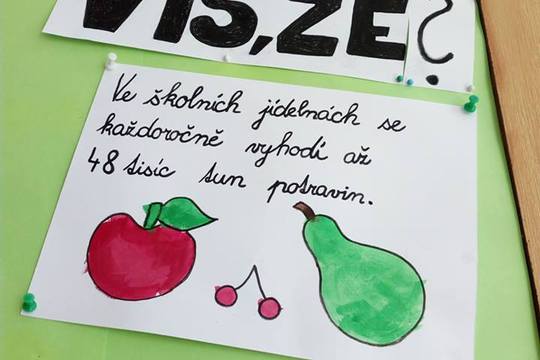 VÍŠ, ŽE ?
Ve školních jídelnách se
každoročně vyhodí až
48 tisíc tun potravin.